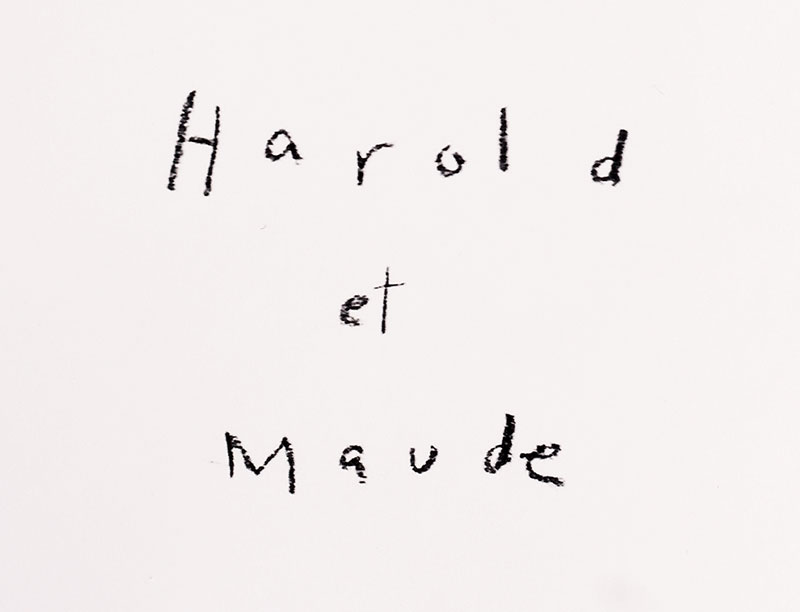 Harold
et
Maude